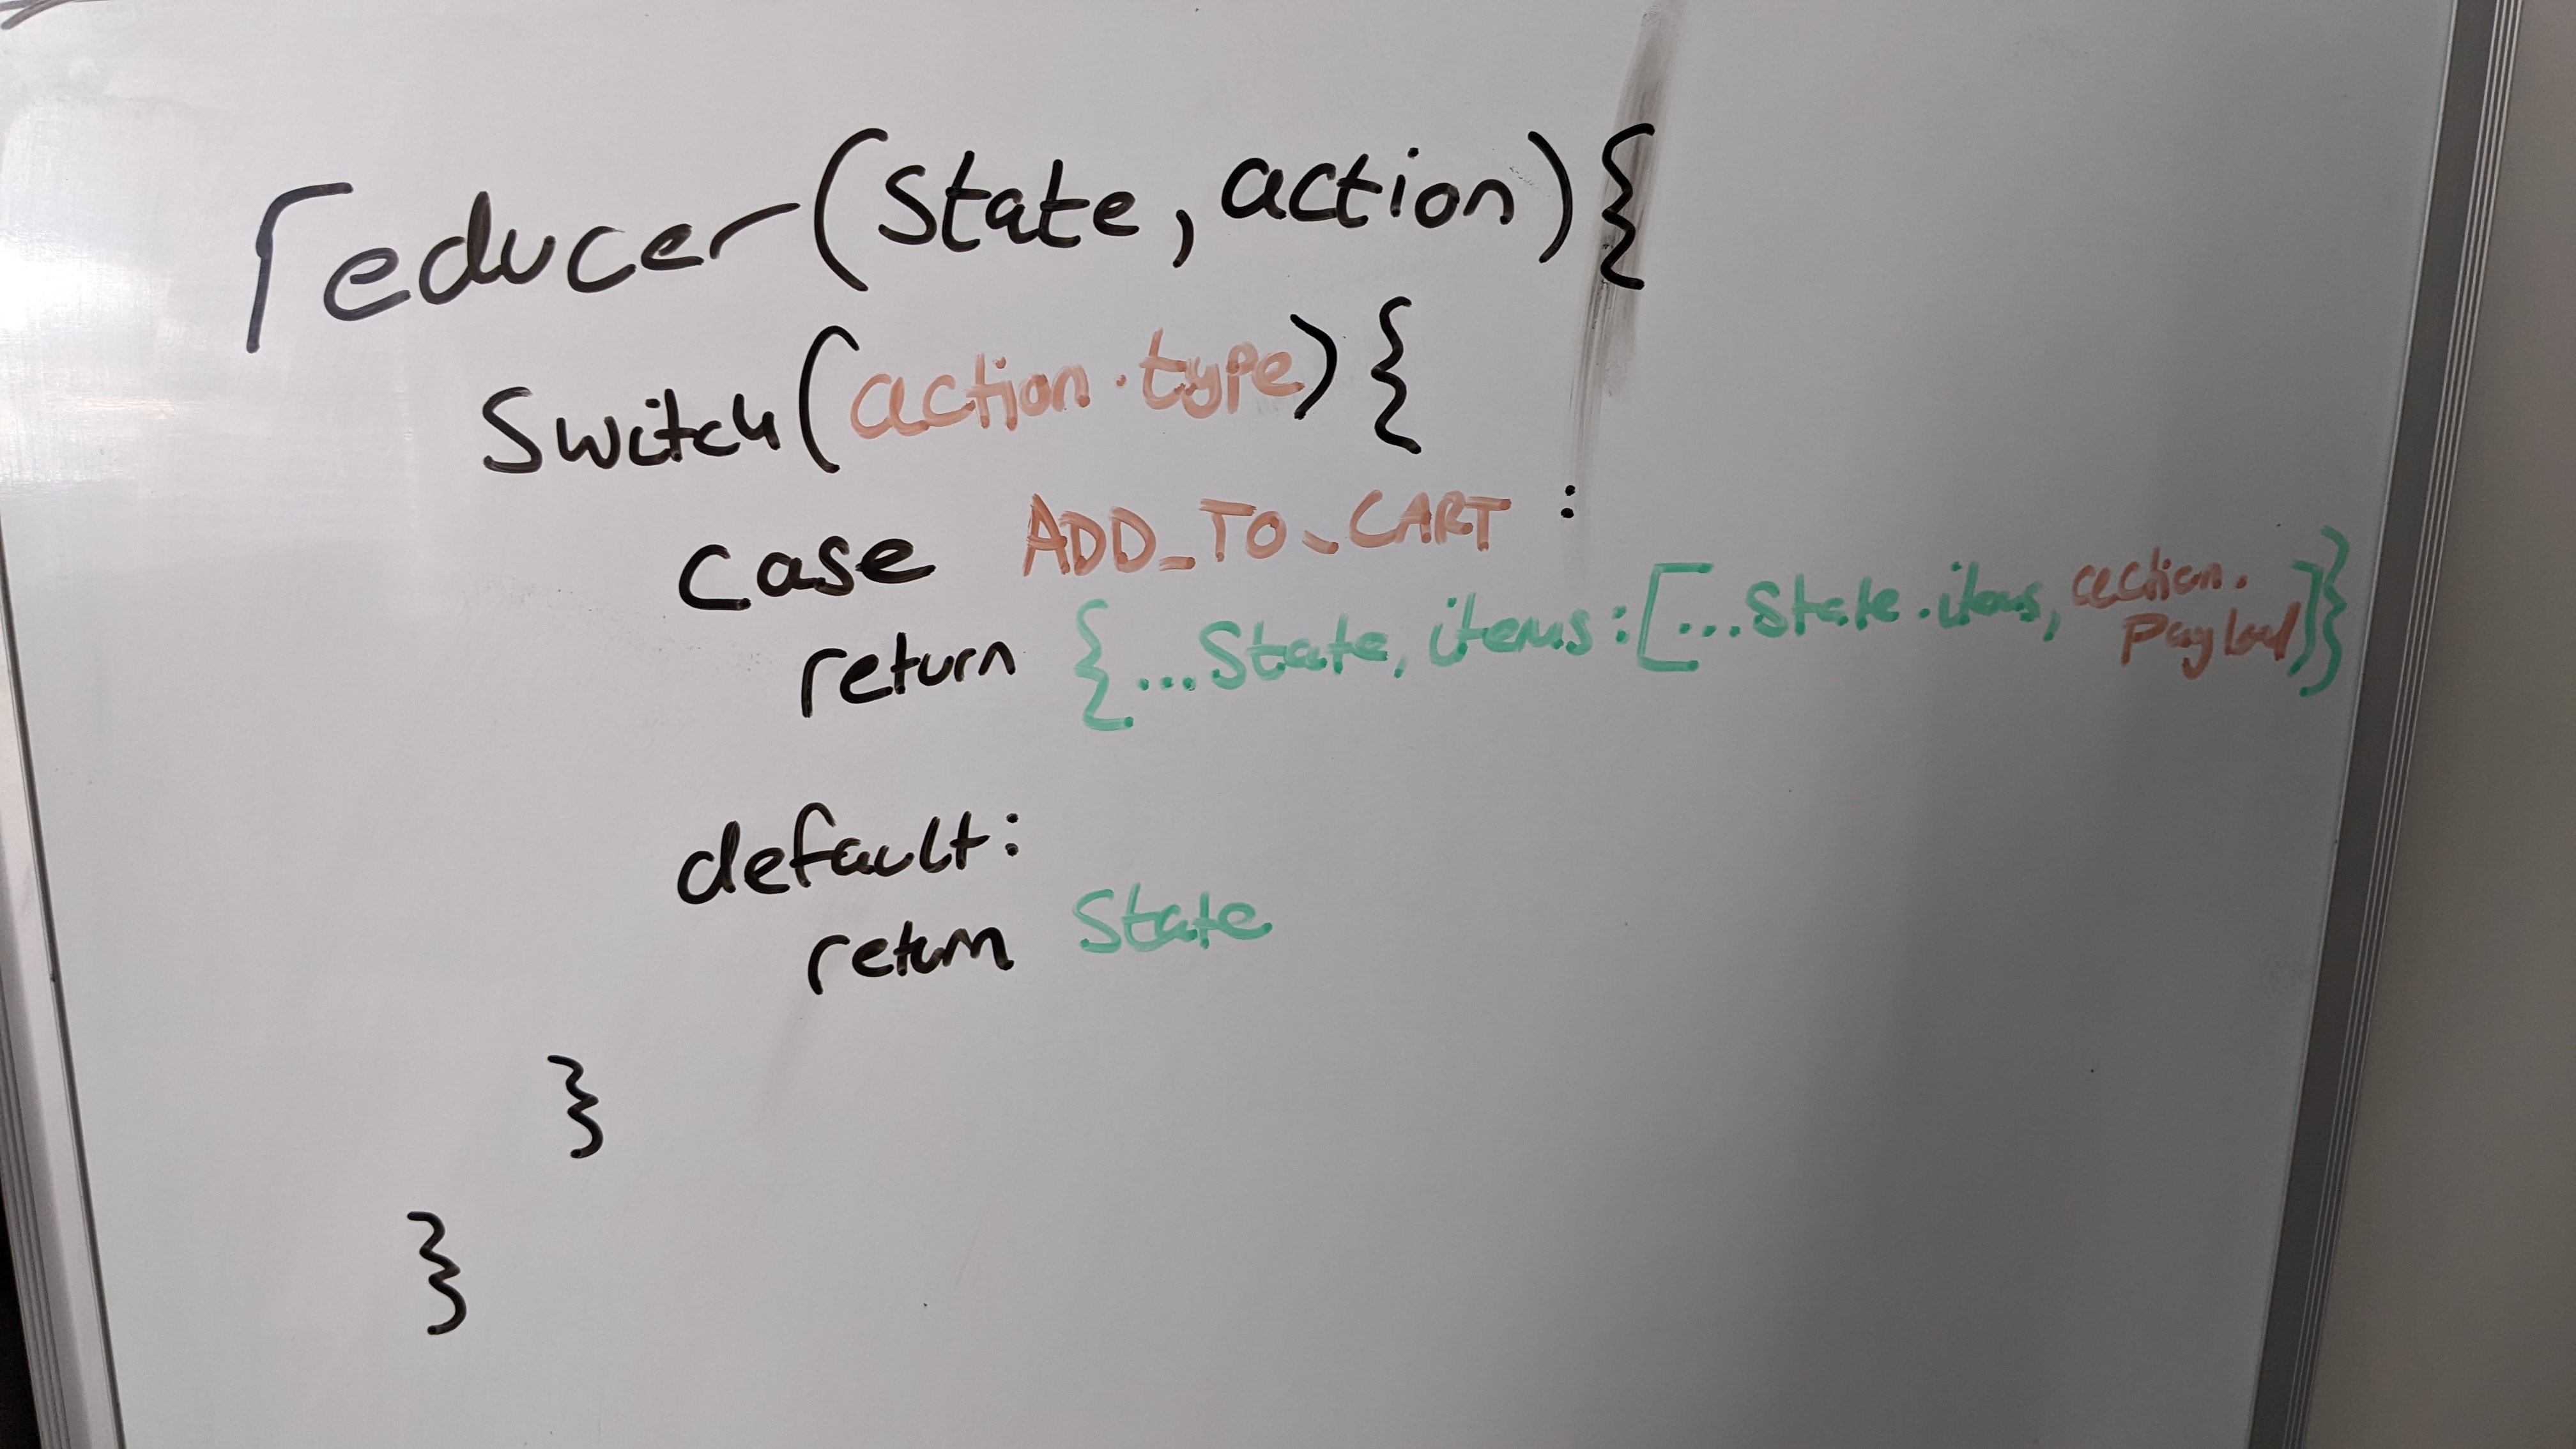 reducer(state, action){
switch(action.type){
case ADD_TO_CART :
return {...state, items:[...state.items, action.
payload]}
default:
return state
}
}